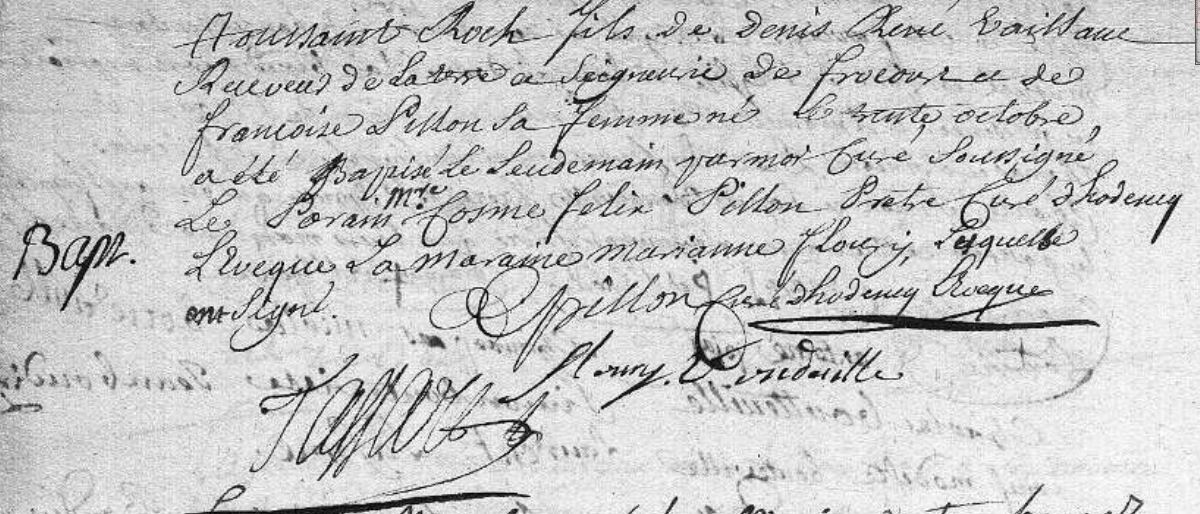 Toussaint Roch fils de Denis René Vaillant
Receveur de La terre et Seigneurie de frocourt et de
françoise Pillon Sa femme né le trente octobre,
a été Bapisé Le Lendemain par moi Curé Soussigné
Le Parain Mre Cosme felix Pillon Pretre Curé d'hodencq
Bapt.
L'Eveque La Maraine Marianne floury, Lesquels
ont Signé.
Pillon Curé d'hodencq L'eveque
floury.